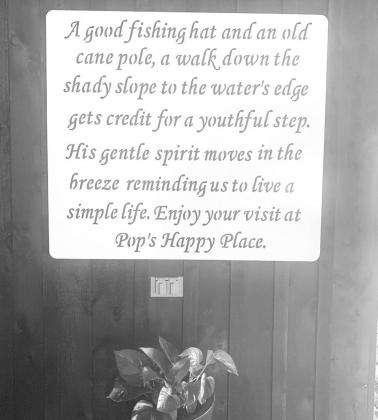 A good fishing hat and an old
cane pole, a walk down the
shady slope to the water's edge
gets credit for a youthful step.
His gentle spirit moves in the
breeze reminding us to live a
simple life. Enjoy your visit at
Pop's Happy Place.